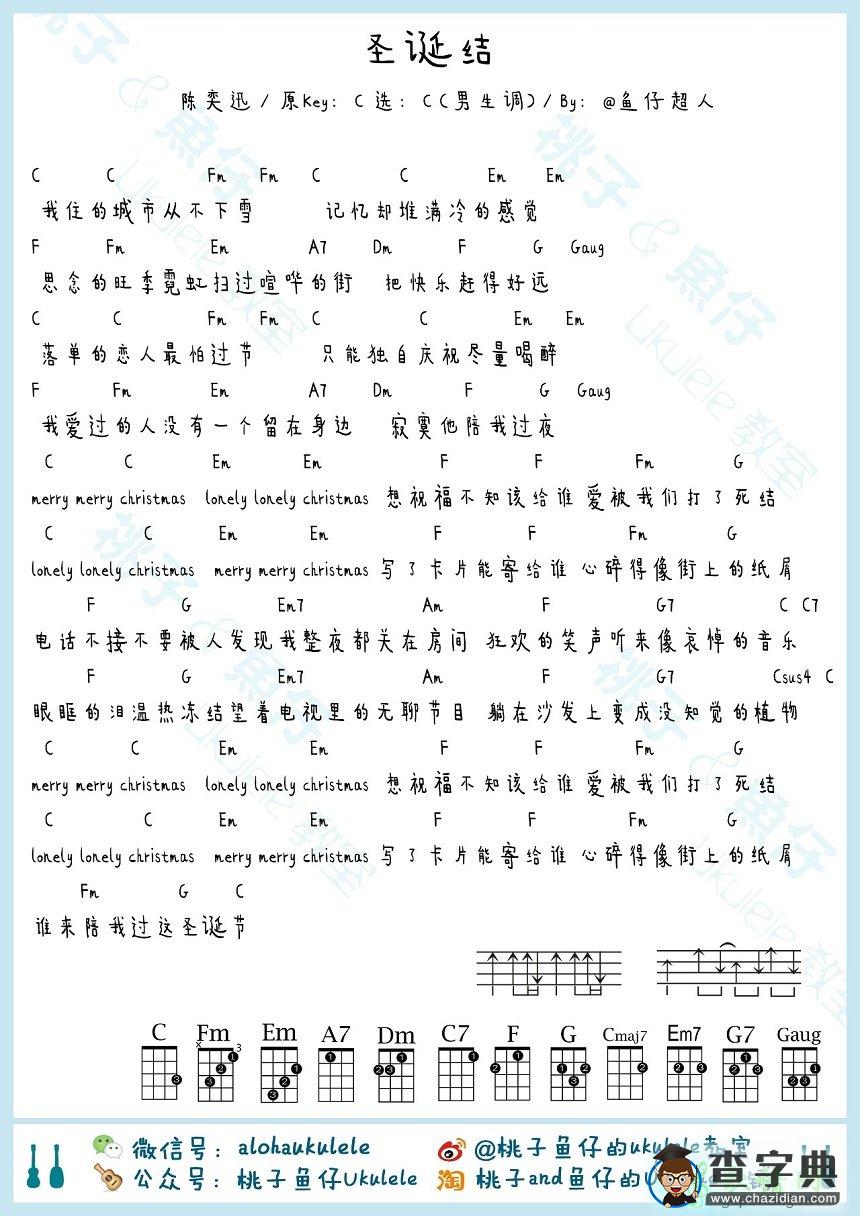 圣诞结
陈奕迅 / 原Key: C 选: C(男生调) / By: @鱼仔超人
C C Fm Fm C C Em Em
我住的城市从不下雪 记忆却堆满冷的感觉
F Fm Em A7 Dm F G Gaug
思念的旺季霓虹扫过喧哗的街 把快乐赶得好远
C C Fm Fm C C Em Em
落单的恋人最怕过节 只能独自庆祝尽量喝醉
F Fm Em A7 Dm F G Gaug
我爱过的人没有一个留在身边 寂寞他陪我过夜
C C Em Em F F Fm G
merry merry christmas lonely lonely christmas 想祝福不知该给谁 爱被我们打了死结
C C Em Em F F Fm G
lonely lonely christmas merry merry christmas 写了卡片能寄给谁 心碎得像街上的纸屑
F G Em7 Am F G7 C C7
电话不接不要被人发现我整夜都关在房间 狂欢的笑声听来像哀悼的音乐
F G Em7 Am F G7 Csus4 C
眼眶的泪温热冻结望着电视里的无聊节目 躺在沙发上变成没知觉的植物
C C Em Em F F Fm G
merry merry christmas lonely lonely christmas 想祝福不知该给谁 爱被我们打了死结
C C Em Em F F Fm G
lonely lonely christmas merry merry christmas 写了卡片能寄给谁 心碎得像街上的纸屑
Fm G C
谁来陪我过这圣诞节
C Fm Em A7 Dm C7 F G Cmaj7 Em7 G7 Gaug
微信号: alohaukulele @桃子鱼仔的ukulele教室
公众号: 桃子鱼仔Ukulele 淘 桃子and鱼仔的
查字典
www.chazidian.com
桃子 & 魚仔 Ukulele 教室